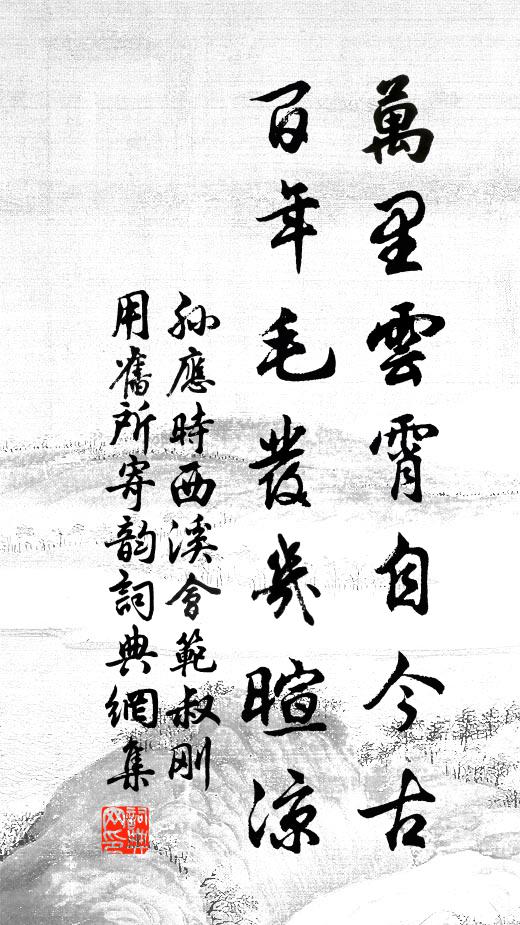 萬里雲霄自今古
百年毛發幾暄涼
孫應時西溪會範叔剛
用舊所寄韵詞典網集